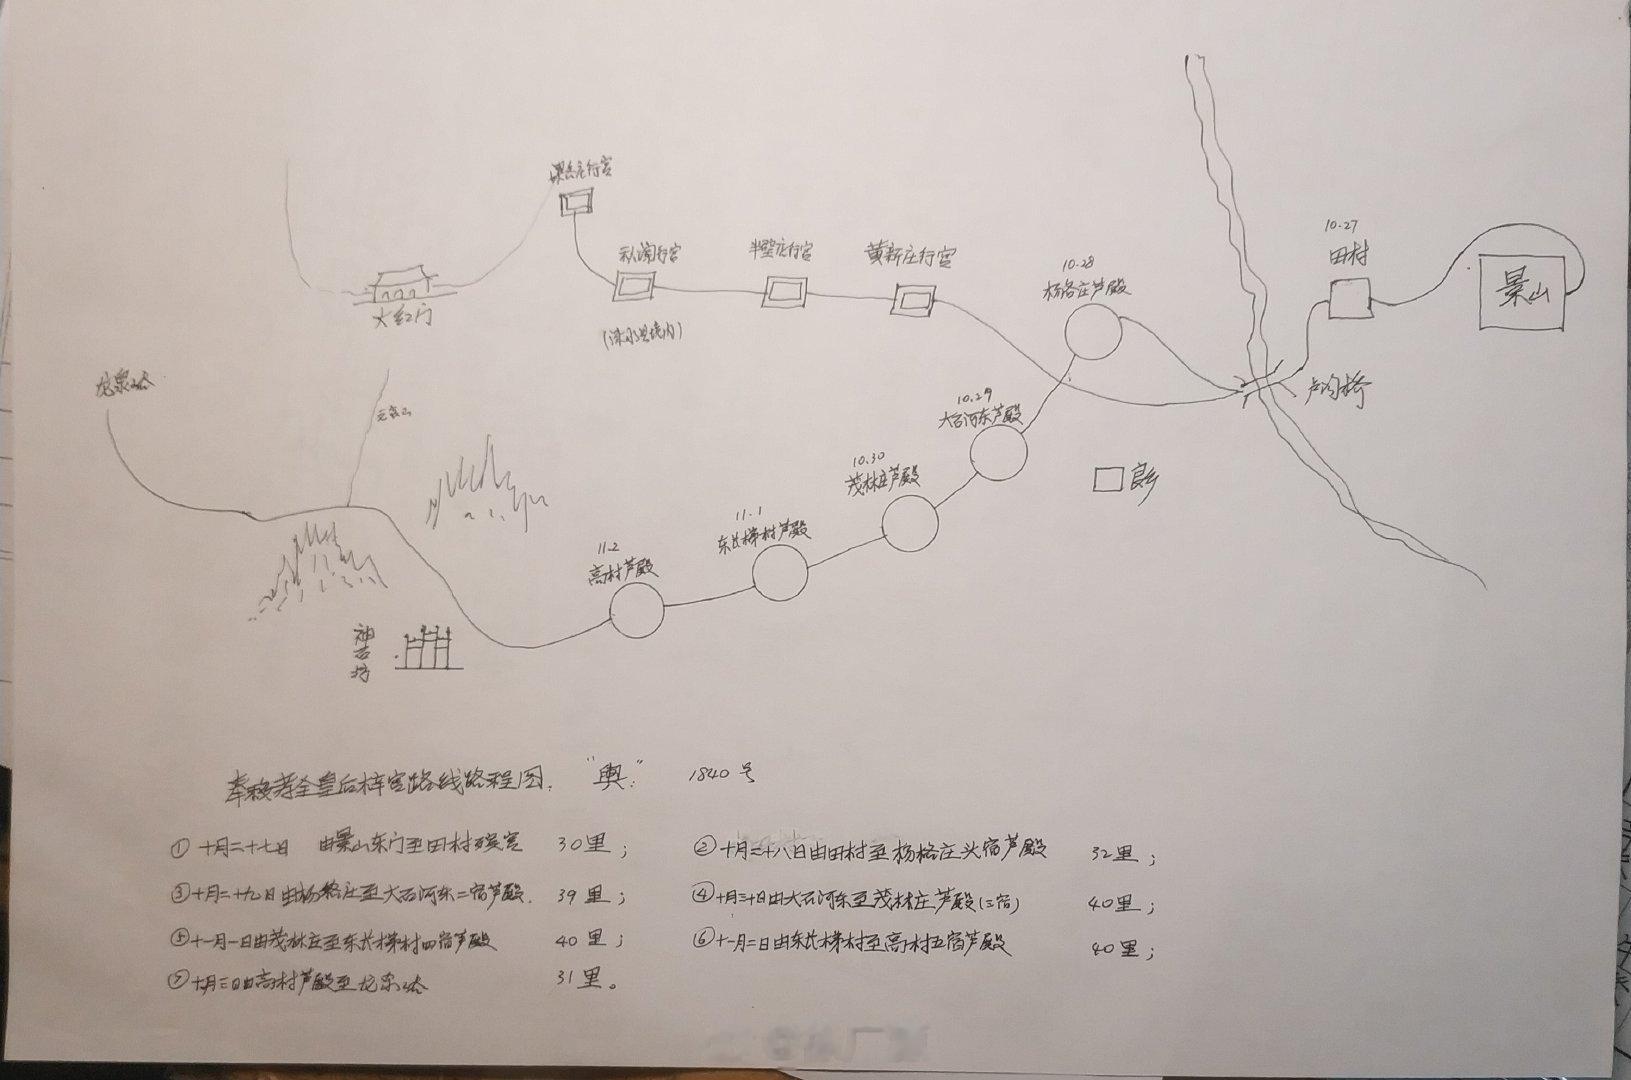 10.27
田村
景山
梁各庄行宫
秋澜行宫
(涞水县境内)
半壁店行宫
黄新庄行宫
10.28
杨格庄芦殿
大红门
龙泉峪
元宝山
卢沟桥
10.29
大石河东芦殿
10.30
茂林庄芦殿
良乡
11.1
东长梯村芦殿
11.2
高村芦殿
神石坊
奉移孝全皇后梓宫路线路程图. "舆": 1840号
①十月二十七日 由景山东门至田村殡宫 30里;
②十月二十八日由田村至杨格庄头宿芦殿 32里;
③十月二十九日由杨格庄至大石河东二宿芦殿. 39里;
④十月三十日由大石河东至茂林庄芦殿(三宿) 40里;
⑤十一月一日由茂林庄至东长梯村四宿芦殿 40里;
⑥十一月二日由东长梯村至高村五宿芦殿 40里;
⑦十一月三日由高村芦殿至龙泉峪 31里。